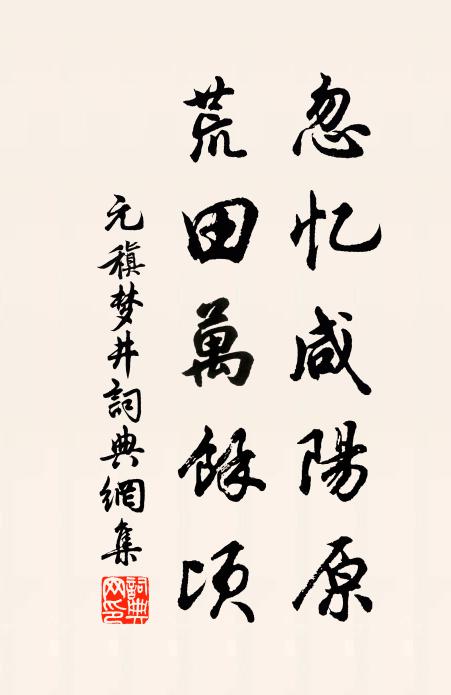 忽忆咸陽原
荒田萬餘頃
元稹梦井詞典網集
詞典网印